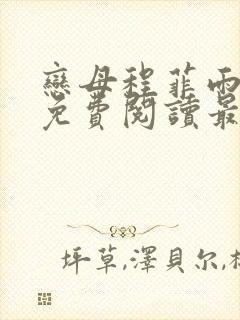 戀母程菲雨
免費閱讀最
坪草,澤貝尔,